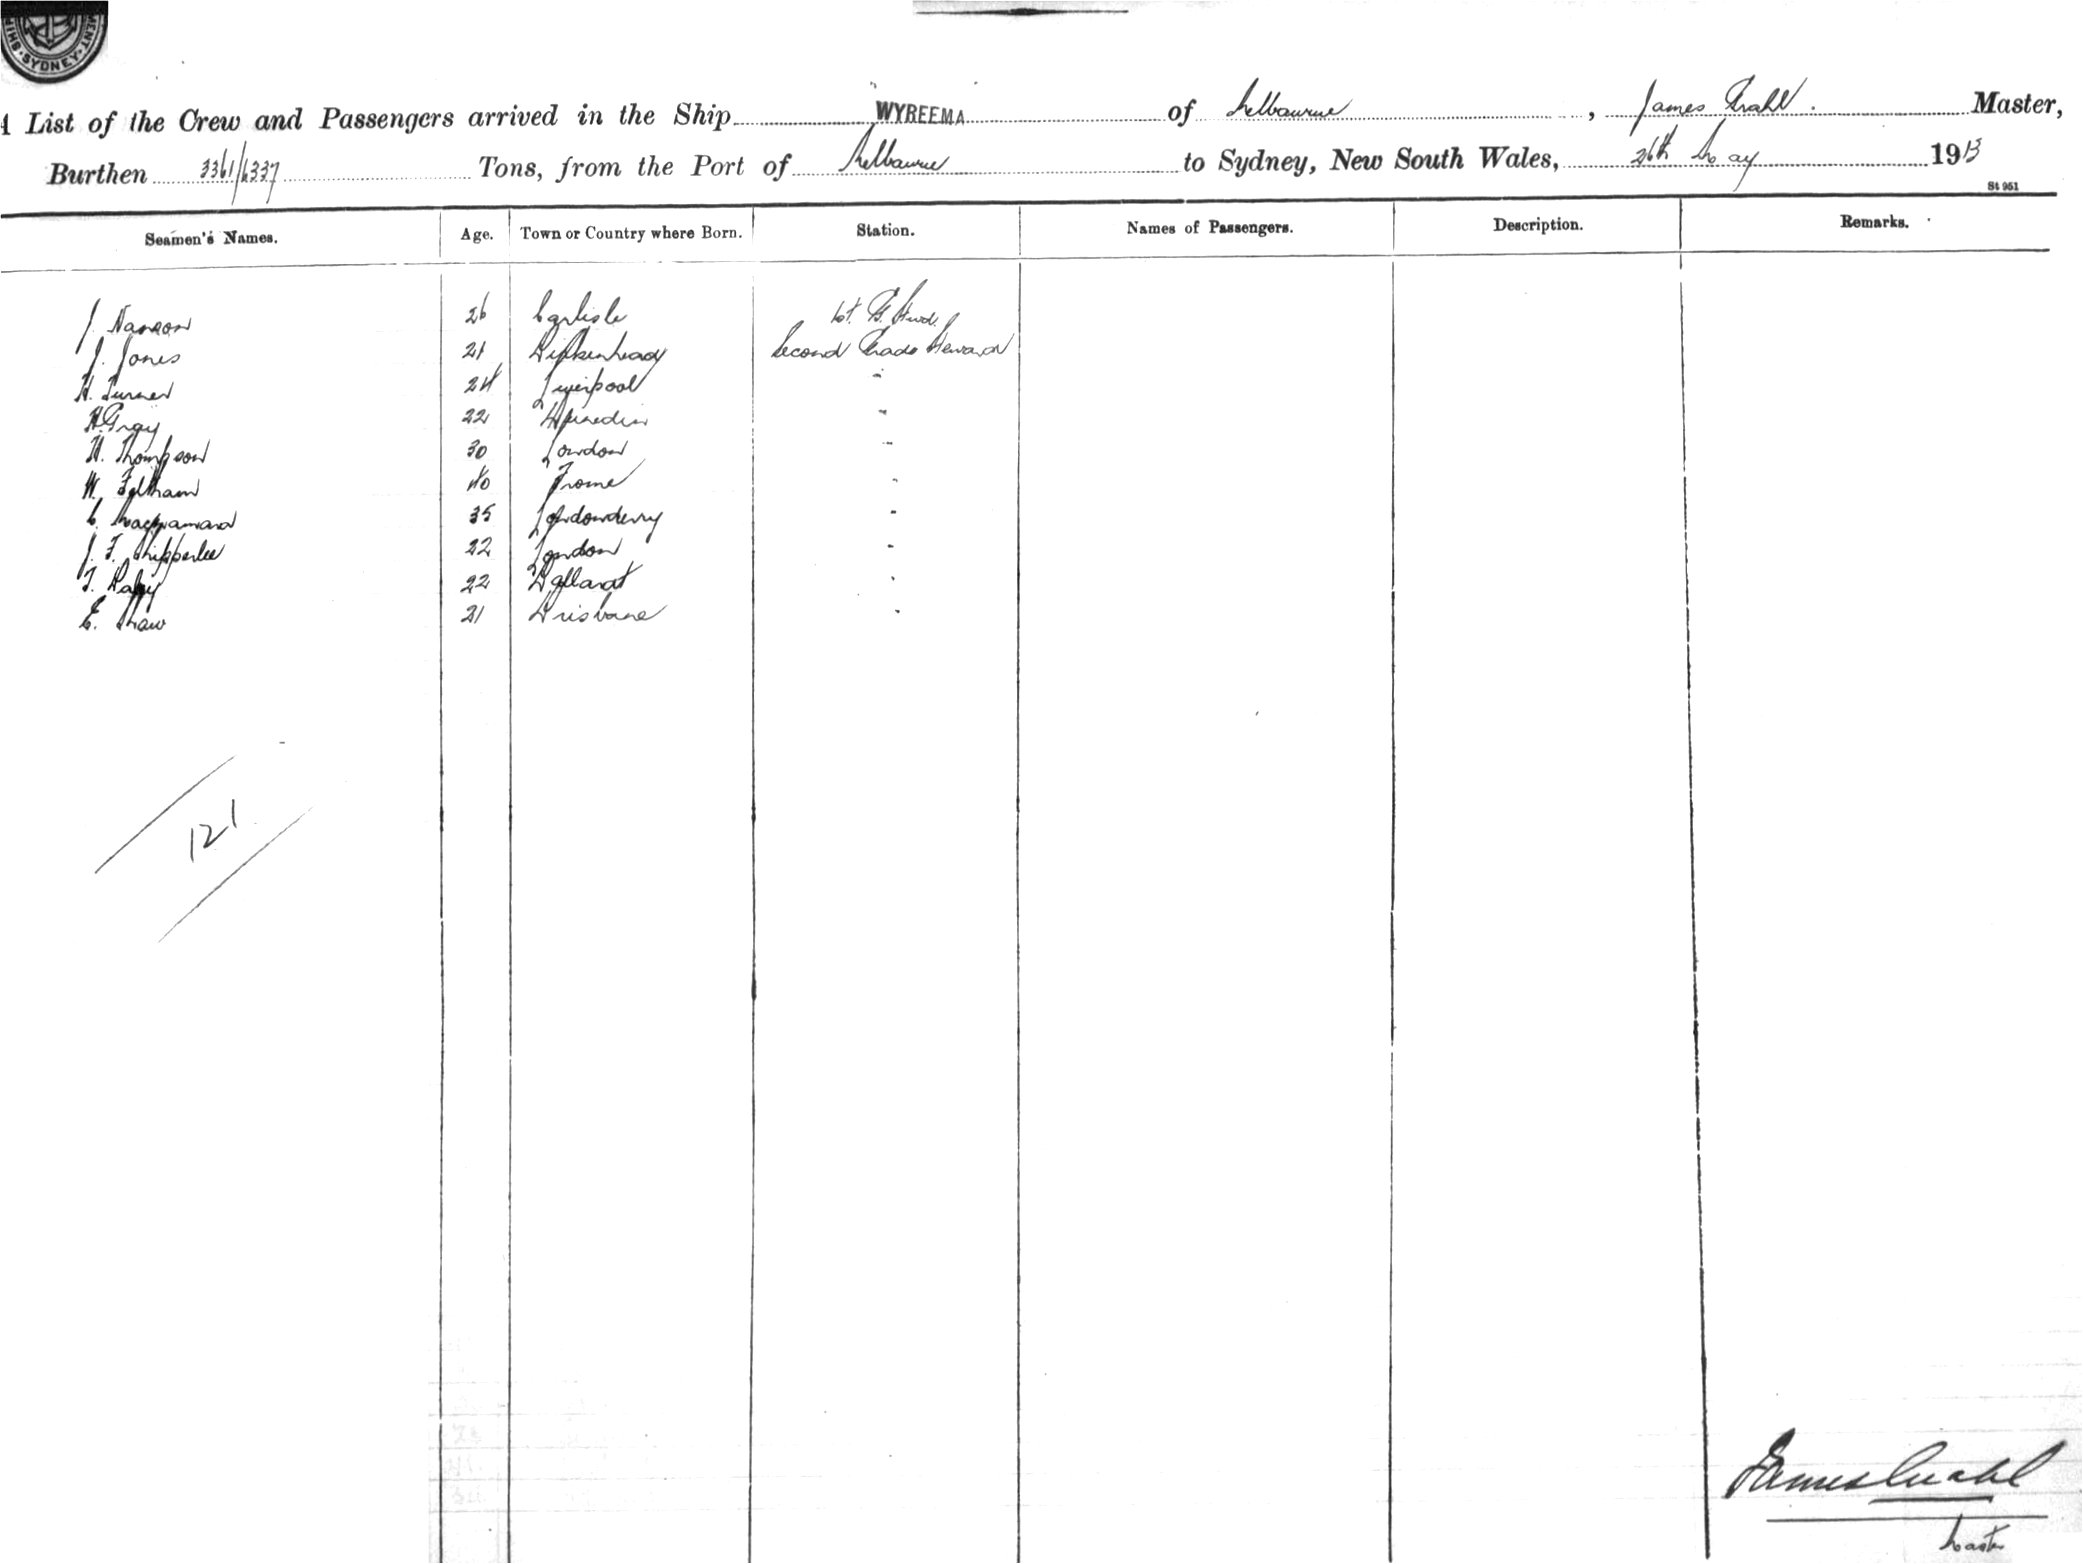 SYDNEY
List of the Crew and Passengers arrived in the Ship WYREEMA of Melbourne, James Grahl. Master,
Burthen 3361/6337 Tons, from the Port of Melbourne to Sydney, New South Wales, 26th May 1913
St 951
Seamen's Names. Age. Town or Country where Born. Station. Names of Passengers. Description. Remarks.
J. Nanson 26 Carlisle 1st. G. Stwd.
J. Jones 21 Birkenhead Second Grade Steward
H. Turner 24 Liverpool "
A. Gray 22 Dunedin "
H. Thompson 30 London "
W. Feltham 40 Frome "
C. Macnamara 35 Londonderry "
J. F. Shipperlee 22 London "
T. 22 Ballarat "
E. Shaw 21 Brisbane "
121
James Grahl
Master